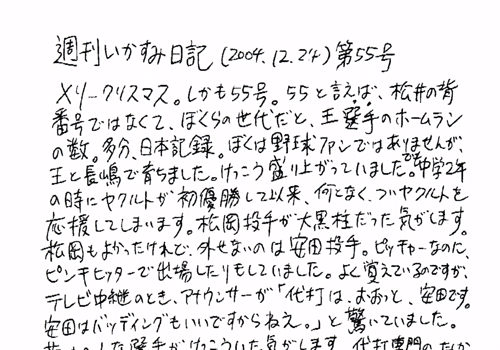 週刊いかすみ日記(2004.12.24)第55号
メリークリスマス。しかも55号。55と言えば、松井の背
番号ではなくて、ぼくらの世代だと、王選手のホームラン
の数。多分、日本記録。ぼくは野球ファンではありませんが、
王と長嶋で育ちました。けっこう盛り上がっていました。中学2年
の時にヤクルトが初優勝して以来、何となく、ついヤクルトを
応援してしまいます。松岡投手が大黒柱だった気がします。
松岡もよかったけれど、外せないのは安田投手。ピッチャーなのに、
ピンチヒッターで出場したりもしていました。よく覚えているのですが、
テレビ中継のとき、アナウンサーが「代打は、おおっと、安田です。
安田はバッティングもいいですからねえ。」と驚いていました。
選手がけっこういた気がします。代打専門の